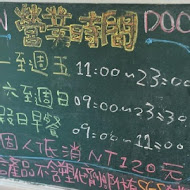 N 營業時間 DOO
一至週五 11:00~23:00
六至週日 09:00~23:30
假日早餐 09:00~11:00
個人低消 NT120元
產品不含